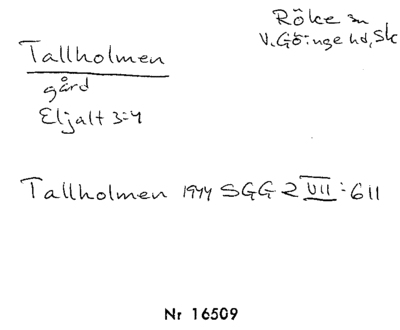 Röke sn
V. Göinge hd, Sk
Tallholmen
gård
Eljalt 3:4
Tallholmen 1944 SGG 2 VII:611
Nr 16509